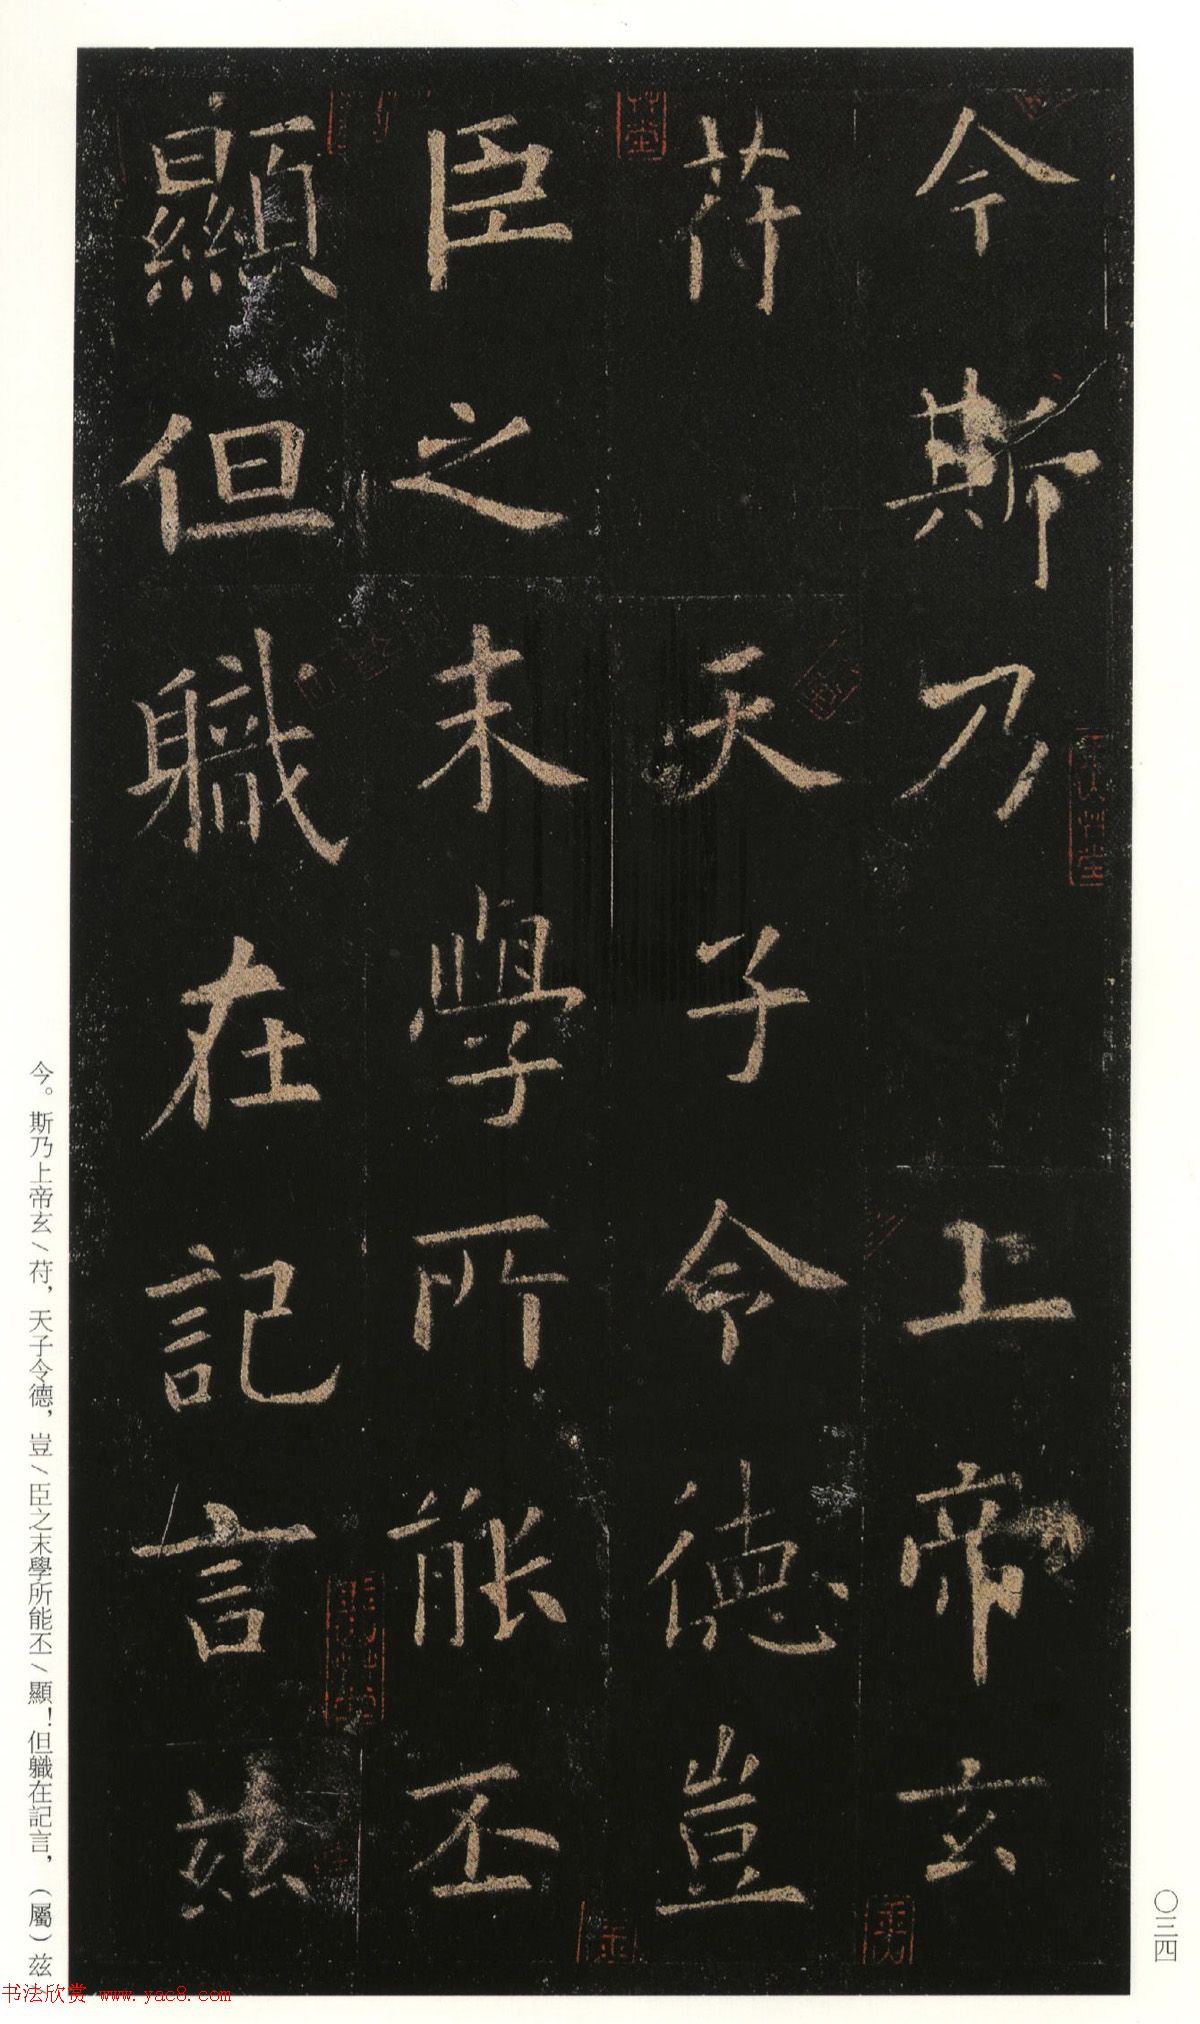 今斯乃上帝玄
苻天子令德豈
臣之末學所能丕
顯但軄在記言兹
今。斯乃上帝玄／苻，天子令德，豈／臣之末學所能丕／顯！但軄在記言，（屬）兹
〇三四
书法欣赏 www.yac8.com